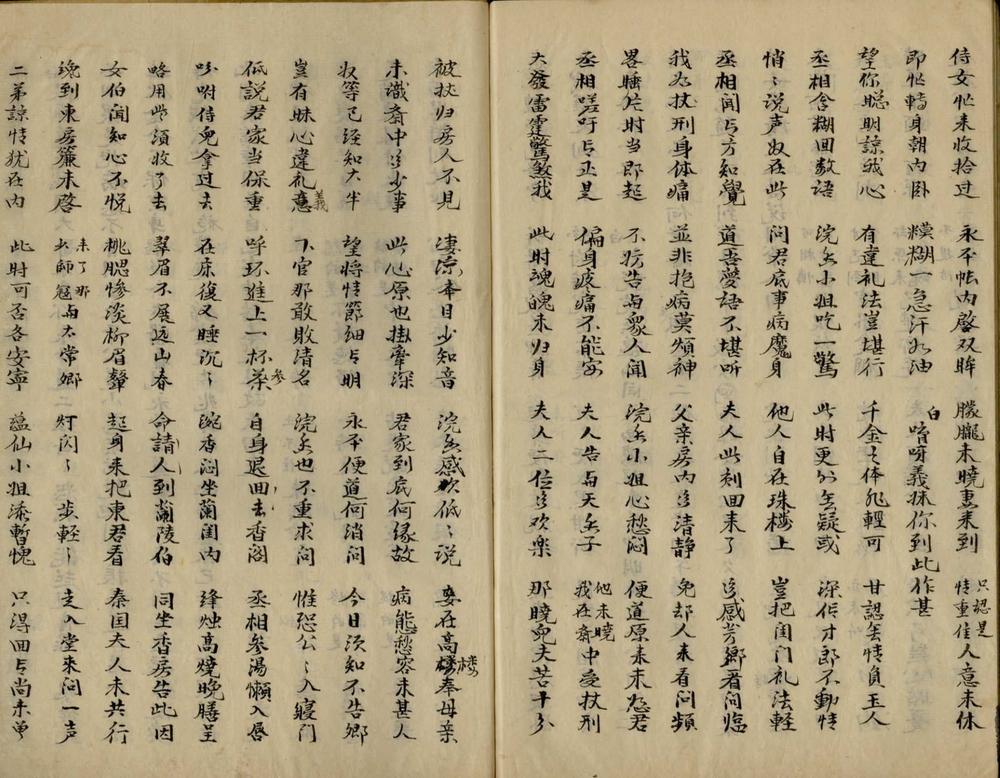 侍女忙来收拾过 永平帐内啓双眸 朦胧未晓妻来到 只認是情重佳人意未休
即忙轉身朝内卧 糢糊一急汗如油 白 唷呀義妹你到此作甚
望你聡明諒我心 有違礼法豈堪行 千金之体非輕可 甘認無情負玉人
丞相含糊回数語 浣無小姐吃一驚 此时更加無疑或 深作才郎不動情
悄〻说声奴在此 问君底事病魔身 他人自在珠楼上 豈把闺门礼法輕
丞相闻与方知覺 道吾憂语不堪听 夫人此刻回来了 多感芳卿看问临
我为扙刑身体痛 並非抱病莫煩神 父亲房内多清静 免却人来看问頻
畧睡片时当即起 不须告与衆人闻 浣無小姐心愁闷 便道原来未怨君
丞相嗟吁与正是 偏身疼痛不能安 夫人告与天無子 他未晓我在斎中受扙刑
大發雷霆驚煞我 此时魂魄未归身 夫人二位多欢楽 那晓兒夫苦十分
被扙归房人不見 凄凉本目少知音 浣無感欢低〻说 妾在高楼奉母亲
未識斋中多少事 此心原也掛牽深 君家到底何缘故 病態愁容未甚人
奴等已经知大半 望将情節细与明 永平便道何消问 今日须知不告卿
豈有昧心違礼義 下官那敢敗清名 浣無也不重求问 惟恐公〻入寝门
低説君家当保重 呼环進上一杯参茶 自身退回去香阁 丞相参湯懒入唇
吩咐侍兒拿过去 在床復又睡沉〻 宛香闷坐蘭闺内 绛烛高燒晚膳呈
略用些须收了去 翠眉不展远山春 命請人到蘭陵伯 同坐香房告此因
女伯闻知心不悦 桃腮惨淡柳眉颦 起身来把東君看 秦国夫人未共行
纔到東房簾未啓 未了那少師冠与太常卿 灯闪〻 步軽〻 走入堂来问一声
二弟諒情犹在内 此时可否各安寧 蕴仙小姐添暫愧 只得回与尚未曾